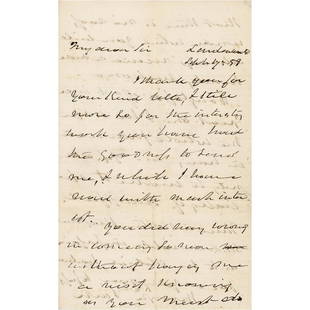 My dear Sir
Sept 17. 58
I thank you for
your Kind letter, & still
more so for the interesting
work you have had
the goodness to send
me, & which I have
read with much inter
est.
You did very wrong
in coming so near
without paying me
a visit, Knowing
as you must do